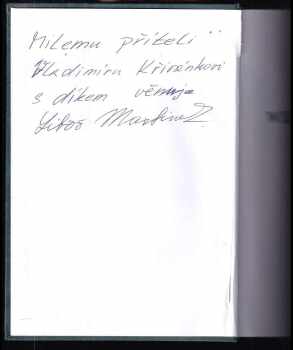 Milemu příteli
Vladimíru Křivánkovi
s díkem věnuje
Martinek